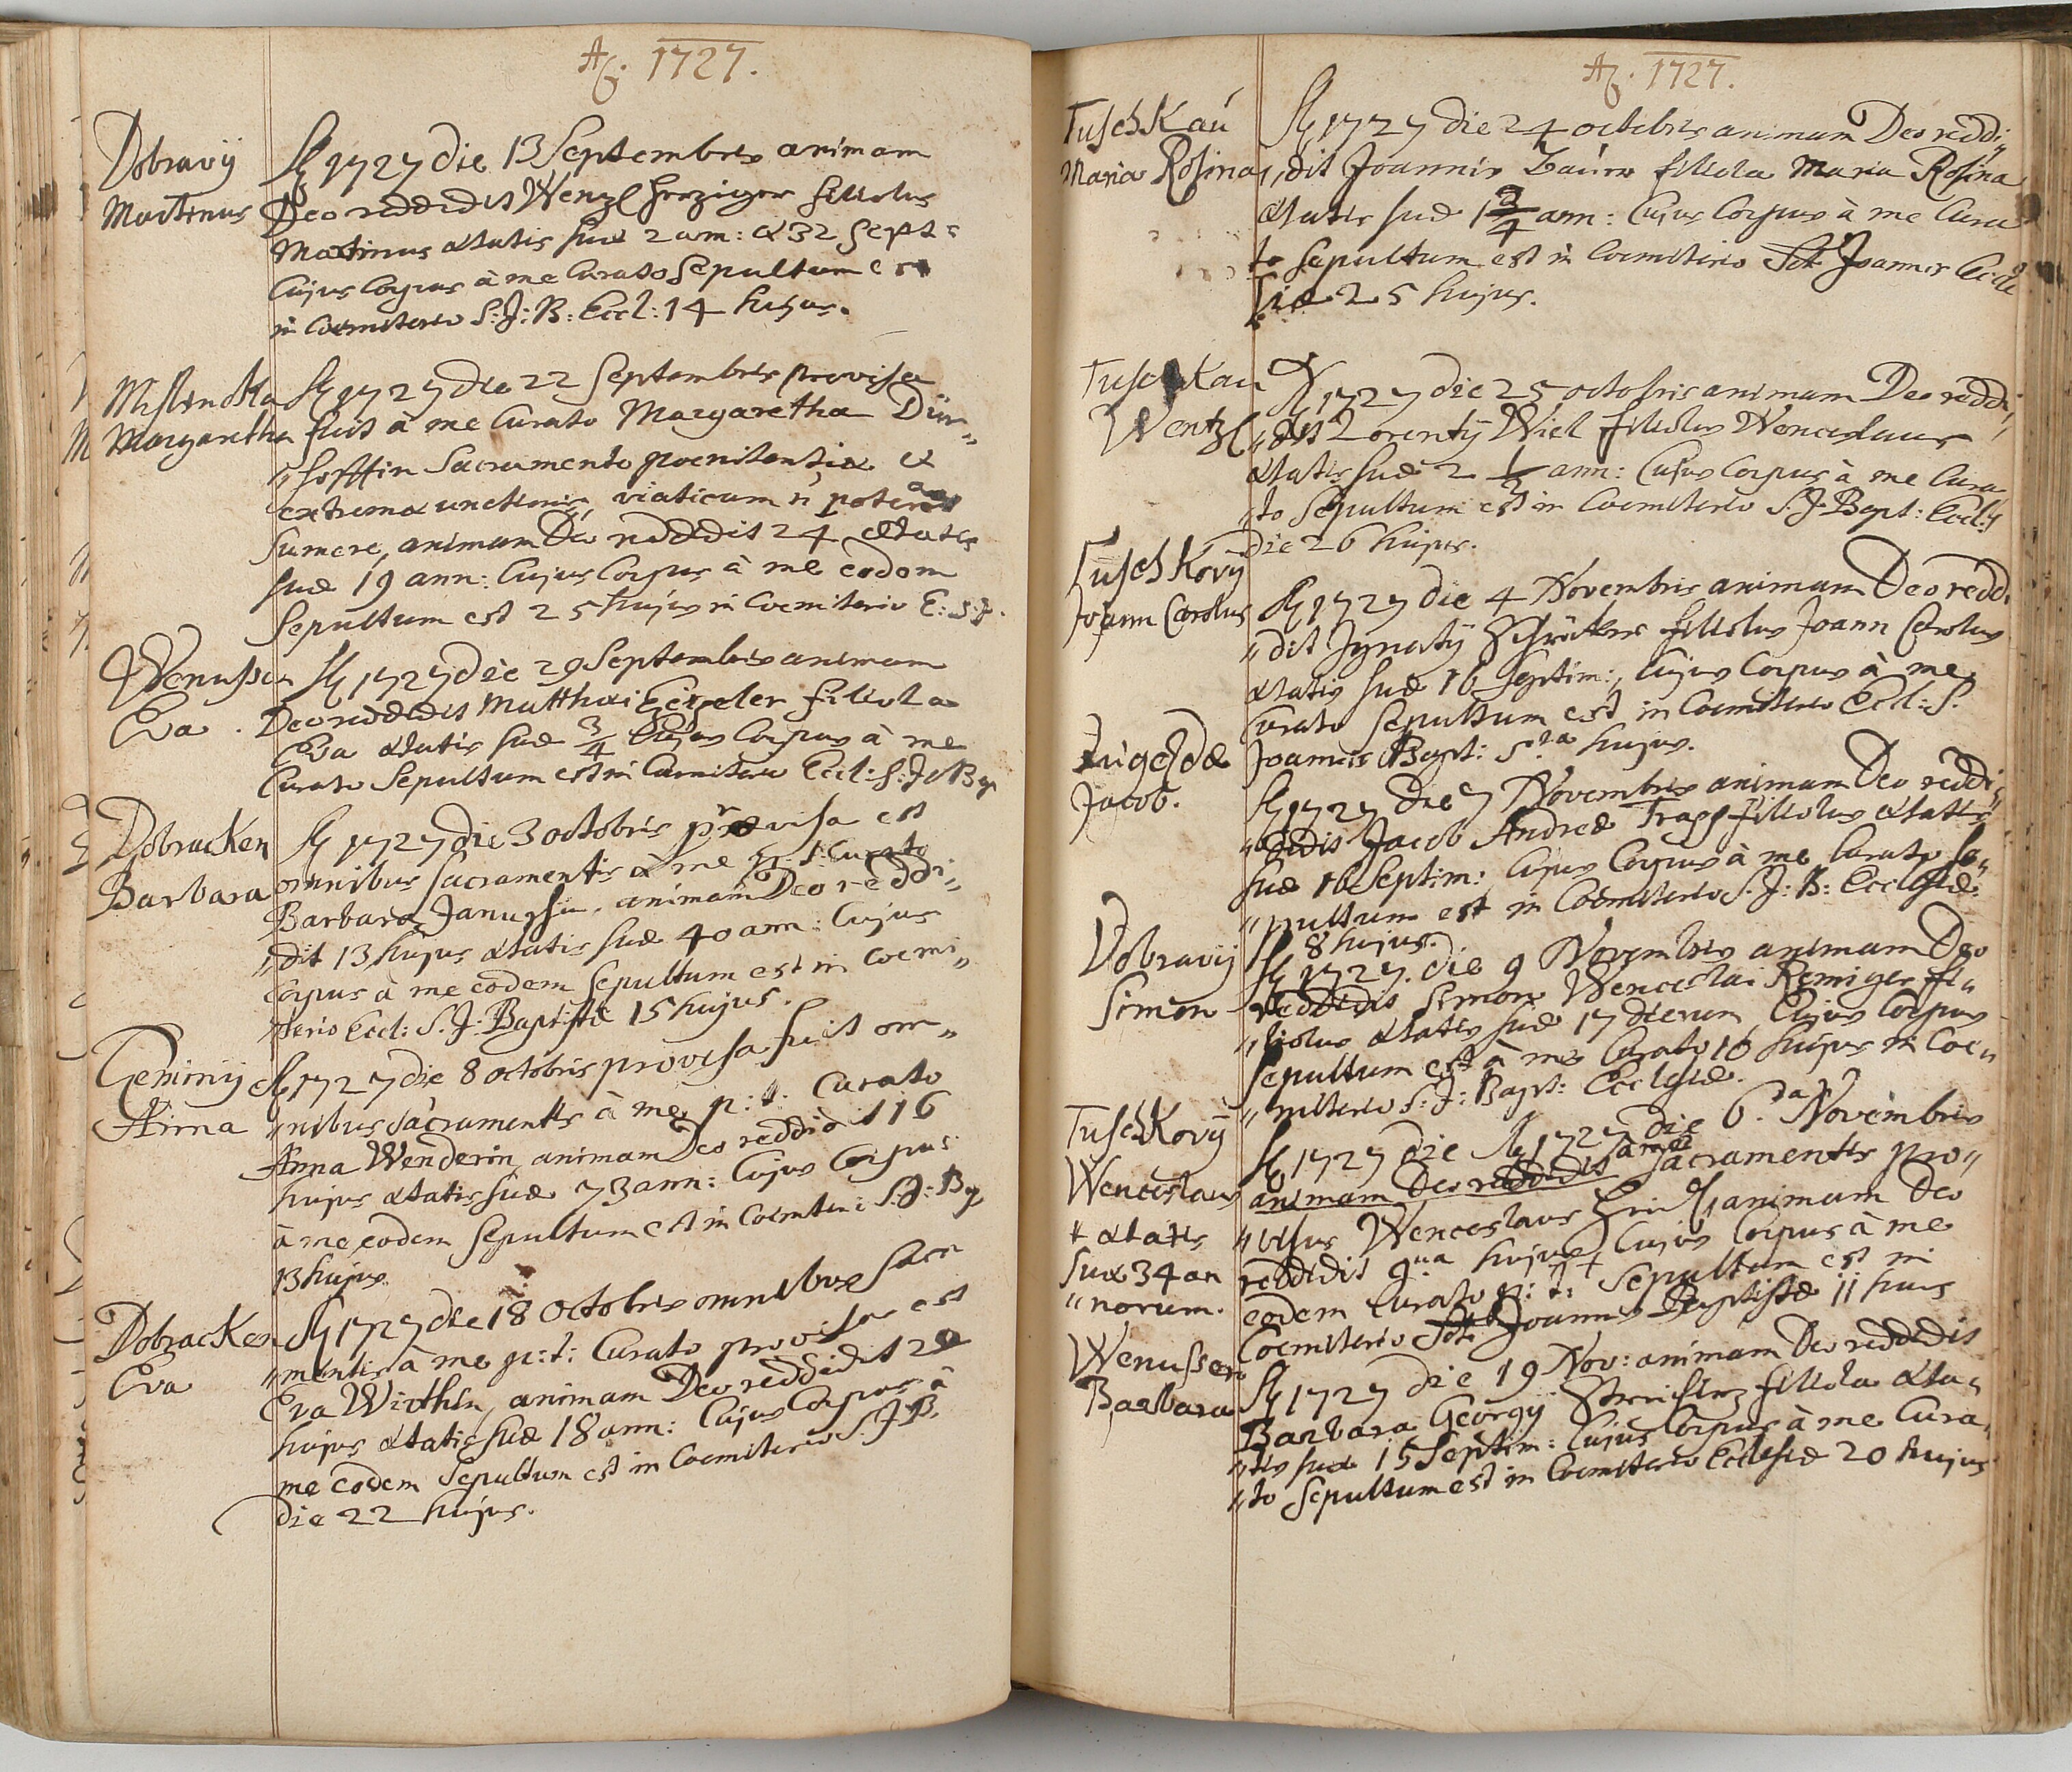 Ao. 1727.
Dobravÿ
Martinus
A 1727 die 13 Septembris animam
Deo reddidit Wenzl Herziger filiolus
Martinus ætatis suæ 2 ann: & 32 Sept:
Cujus Corpus à me Curato Sepultum est
in Coemiterio S: J: B: Eccl: 14 hujus.
Mislincka
Margaretha
A 1727 die 22 Septembris provisa
fuit à me Curato Margaretha Dür„
„hofftin Sacramento poenitentiæ &
extremæ unctionis, viaticum n̄ poterat
Sumere, animam Deo reddidit 24 ætatis
suæ 19 ann: Cujus Corpus à me eodem
Sepultum est 25 hujus in Coemiterio E: S: J.
Wenussen
Eva.
A 1727 die 29 Septembris animam
Deo reddidit Matthæi filiola
Eva ætatis suæ 3/4 Cujus Corpus à me
Curato Sepultum est in Coemiterio Eccl: S: J Bap
Dobracken
Barbara
A 1727 die 3 octobris prævisa est
omnibus Sacramentis à me p: t: Curato
Barbara animam Deo reddi„
„dit 13 hujus ætatis suæ 40 ann: Cujus
Corpus à me eodem Sepultum est in Coemi„
terio Eccl: S: J: Baptistæ 15 hujus.
Geminÿ
Anna
A 1727 die 8 octobris provisa fuit om„
„nibus Sacramentis à me p: t: Curato
Anna Wenderin, animam Deo reddidit 16
hujus ætatis suæ 73 ann: Cujus Corpus
à me eodem Sepultum est in Coemiteri: S: J: Bap
13 hujus.
Dobracken
Eva
A 1727 die 18 octobris omnibus Sacra
„mentis à me p: t: Curato provisa est
Eva Wirthin, animam Deo reddidit 20
hujus ætatis suæ 18 ann: Cujus Corpus à
me eodem Sepultum est in Coemiterio S. J. B.
die 22 hujus.
Ao. 1727.
Tuschkau
Maria Rosina
A 1727 die 24 octobris animam Deo reddi„
„dit Joannis Bauer filiola Maria Rosina
ætatis suæ 1 3/4 ann: Cujus Corpus à me Cura
to Sepultum est in Coemiterio Sti Joannis Eccle
siæ 25 hujus.
Tuschkau
Wentzl
A 1727 die 25 octobris animam Deo reddi„
„dit Lorentÿ Wiel filiolus Wenceslaus
ætatis suæ 2 1/2 ann: Cujus Corpus à me Cura
„to Sepultum est in Coemiterio S. J. Bapt: Eccl:
die 26 hujus.
Tuschkovÿ
Joann Carolus
A 1727 die 4 Novembris animam Deo reddi
„dit Ignatÿ filiolus Joann Carolus
ætatis suæ 16 Septim: Cujus Corpus à me
Curato Sepultum est in Coemiterio Eccl: S.
Joannis Bapt: 5ta hujus.
Jacob.
A 1727 die 7 Novembris animam Deo reddi„
„didit Jacob Andreæ Trapp filiolus ætatis
suæ 16 Septim: Cujus Corpus à me Curato Se„
„pultum est in Coemiterio S: J: B: Ecclesiæ
8 hujus.
Dobravÿ
Simon
A 1727. die 9 Novembris animam Deo
reddidit Simon Wenceslai Remiger fi„
„liolus ætatis suæ 17 dierum, Cujus Corpus
Sepultum est à me Curato 10 hujus in Coe„
„miterio S: J: Bapt: Ecclesiæ.
Tuschkovÿ
Wenceslaus
+ ætatis
suæ 34 an
„norum.
A 1727 die A 1727 die 6.da Novembris
animam Deo reddidit à me Sacramentis pro„
„visus Wenceslaus animam Deo
reddidit 9na hujus + Cujus Corpus à me
eodem Curato p: t: Sepultum est in
Coemiterio Sti Joannis Baptistæ 11 hujus
Wenussen
Barbara
A 1727 die 19 Nov: animam Deo reddidit
Barbara Georgÿ filiola æta„
„tis suæ 15 Septim: Cujus Corpus à me Cura„
„to Sepultum est in Coemiterio Ecclesiæ 20 hujus